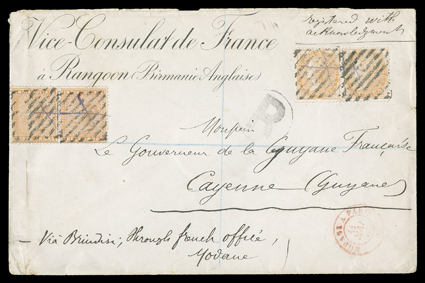 Registered with
acknowledgment
Vice-Consulat de France
à Rangoon (Birmanie Anglaise)
R
Monsieur
Le Gouverneur de la Guyane Française
Cayenne (Guyane)
Via Brindisi; through french office,
Modane